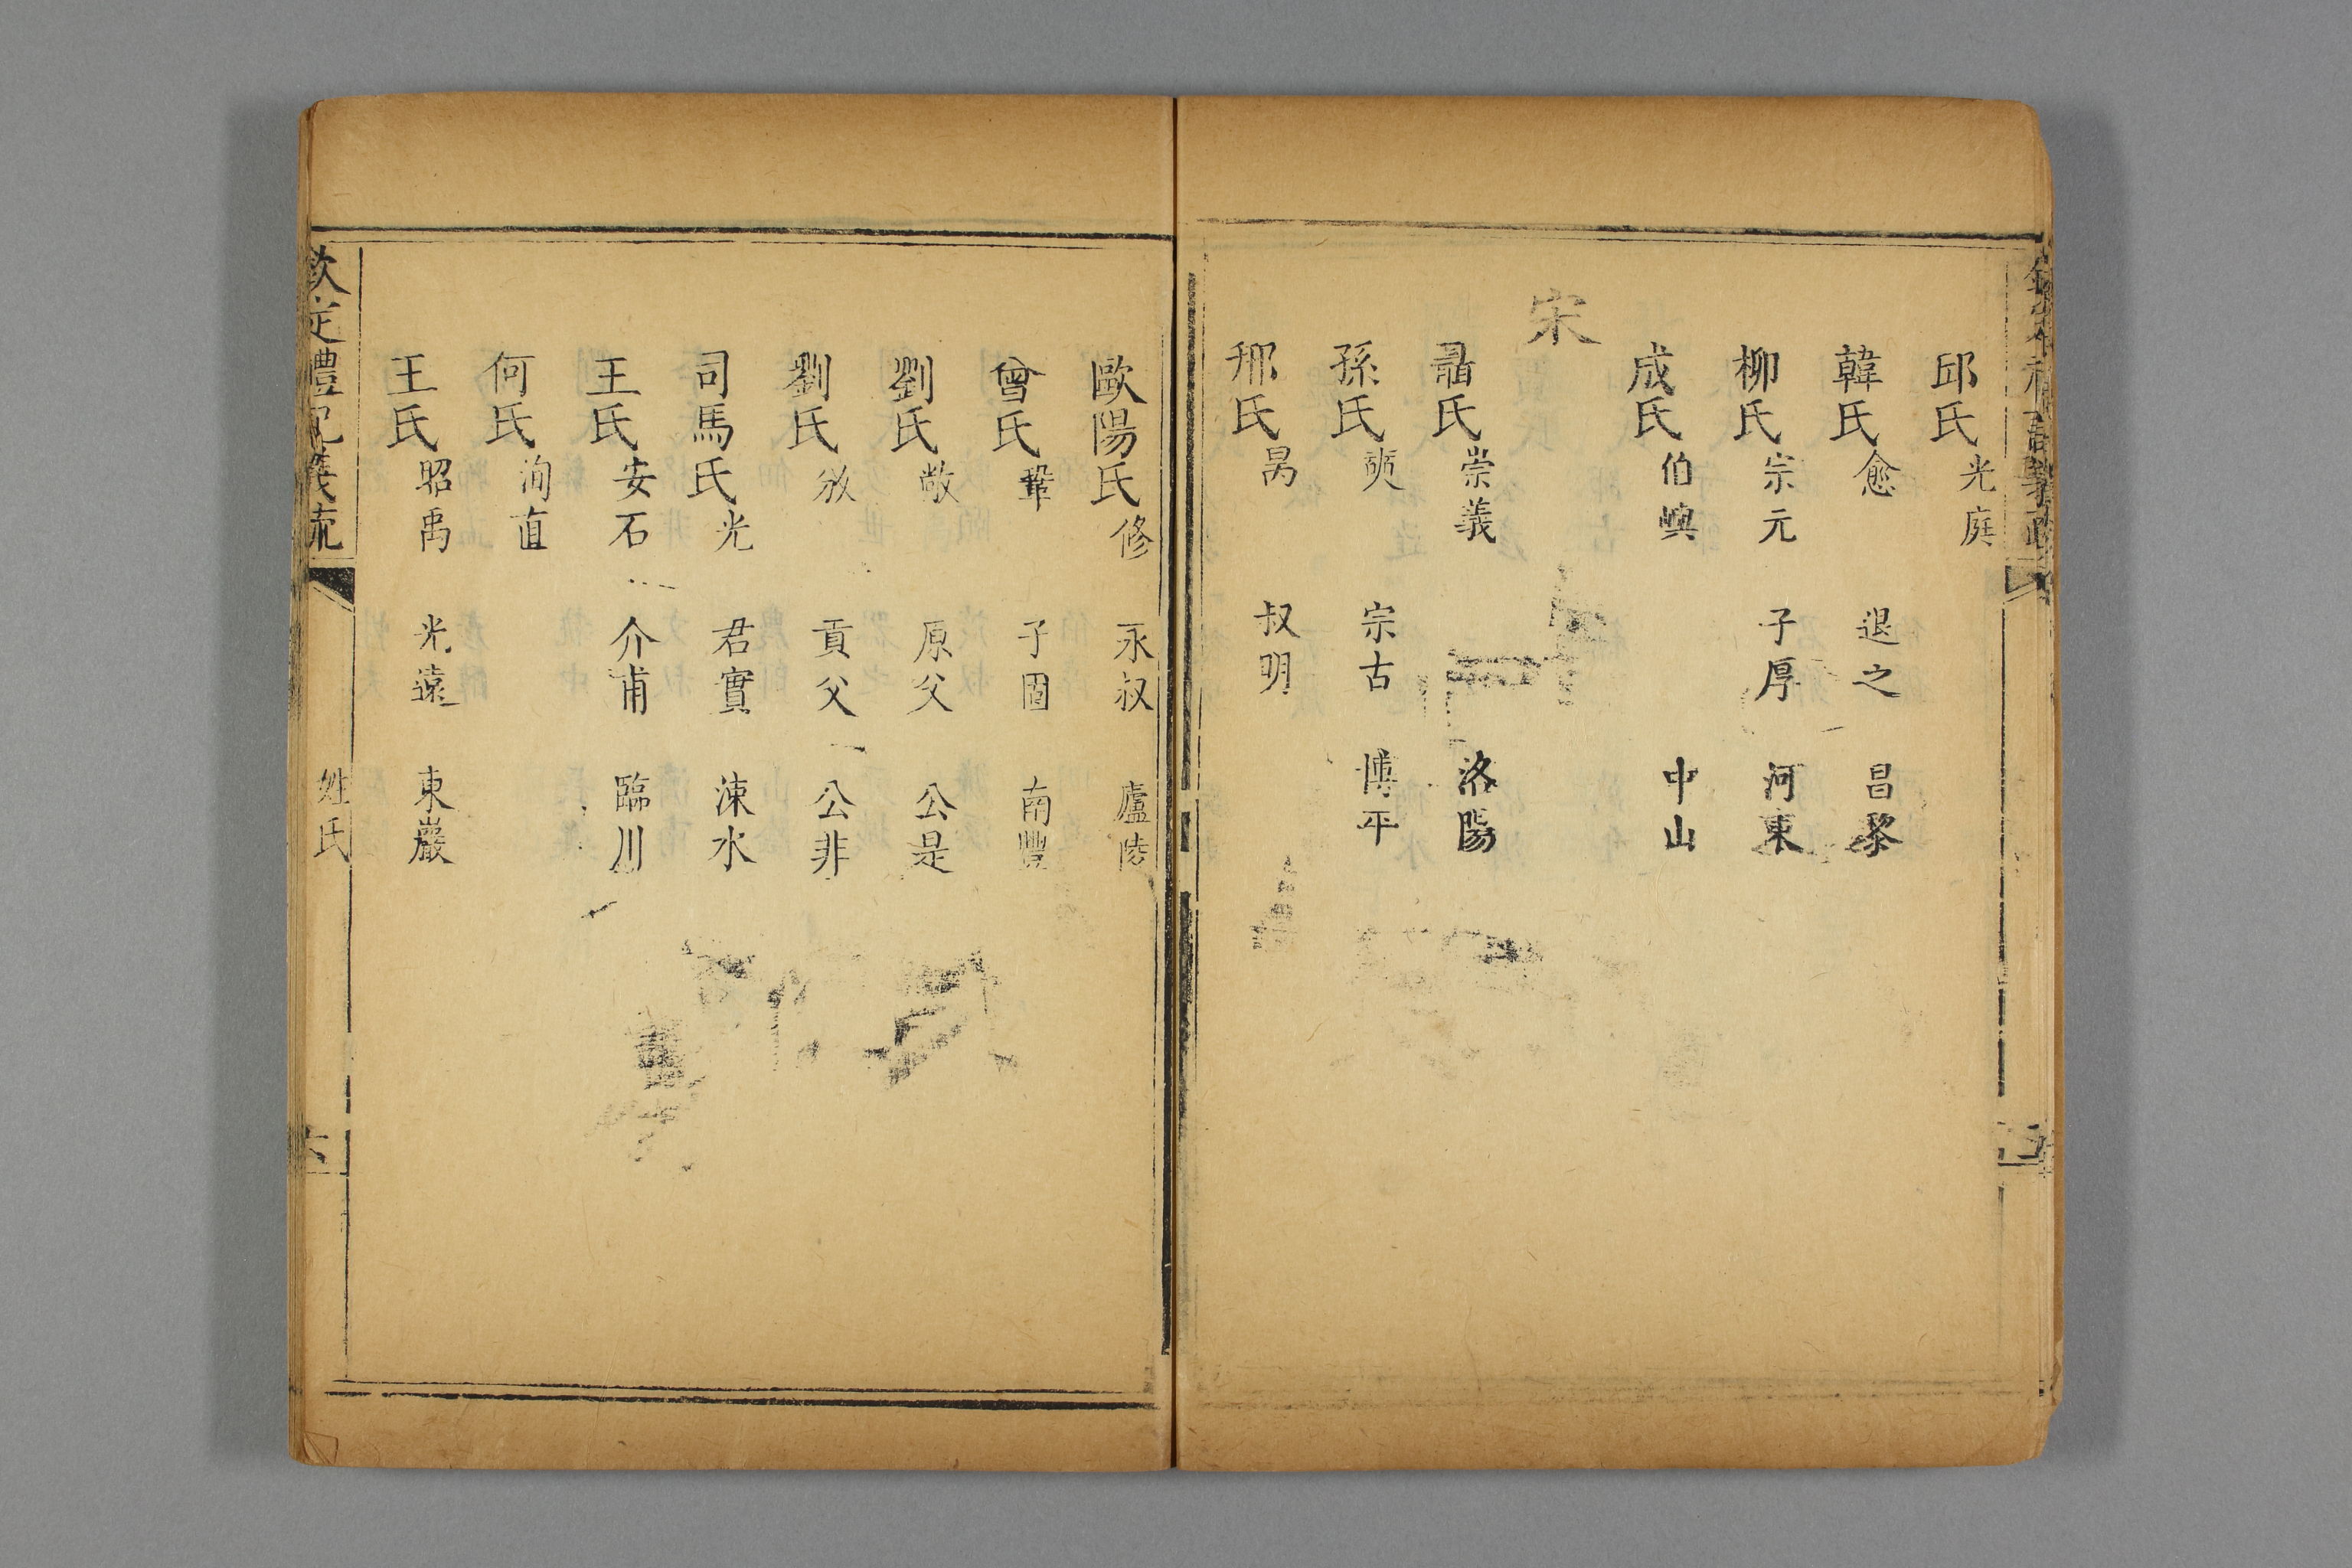 邱氏光庭
韓氏愈 退之 昌黎
柳氏宗元 子厚 河東
成氏伯嶼 中山
宋
聶氏崇義 洛陽
孫氏奭 宗古 博平
邢氏昺 叔明
歐陽氏修 永叔 廬陵
曾氏鞏 子固 南豐
劉氏敞 原父 公是
劉氏攽 貢父 公非
司馬氏光 君實 涑水
王氏安石 介甫 臨川
何氏洵直
王氏昭禹 光遠 東巖
欽定禮記義疏 姓氏 六